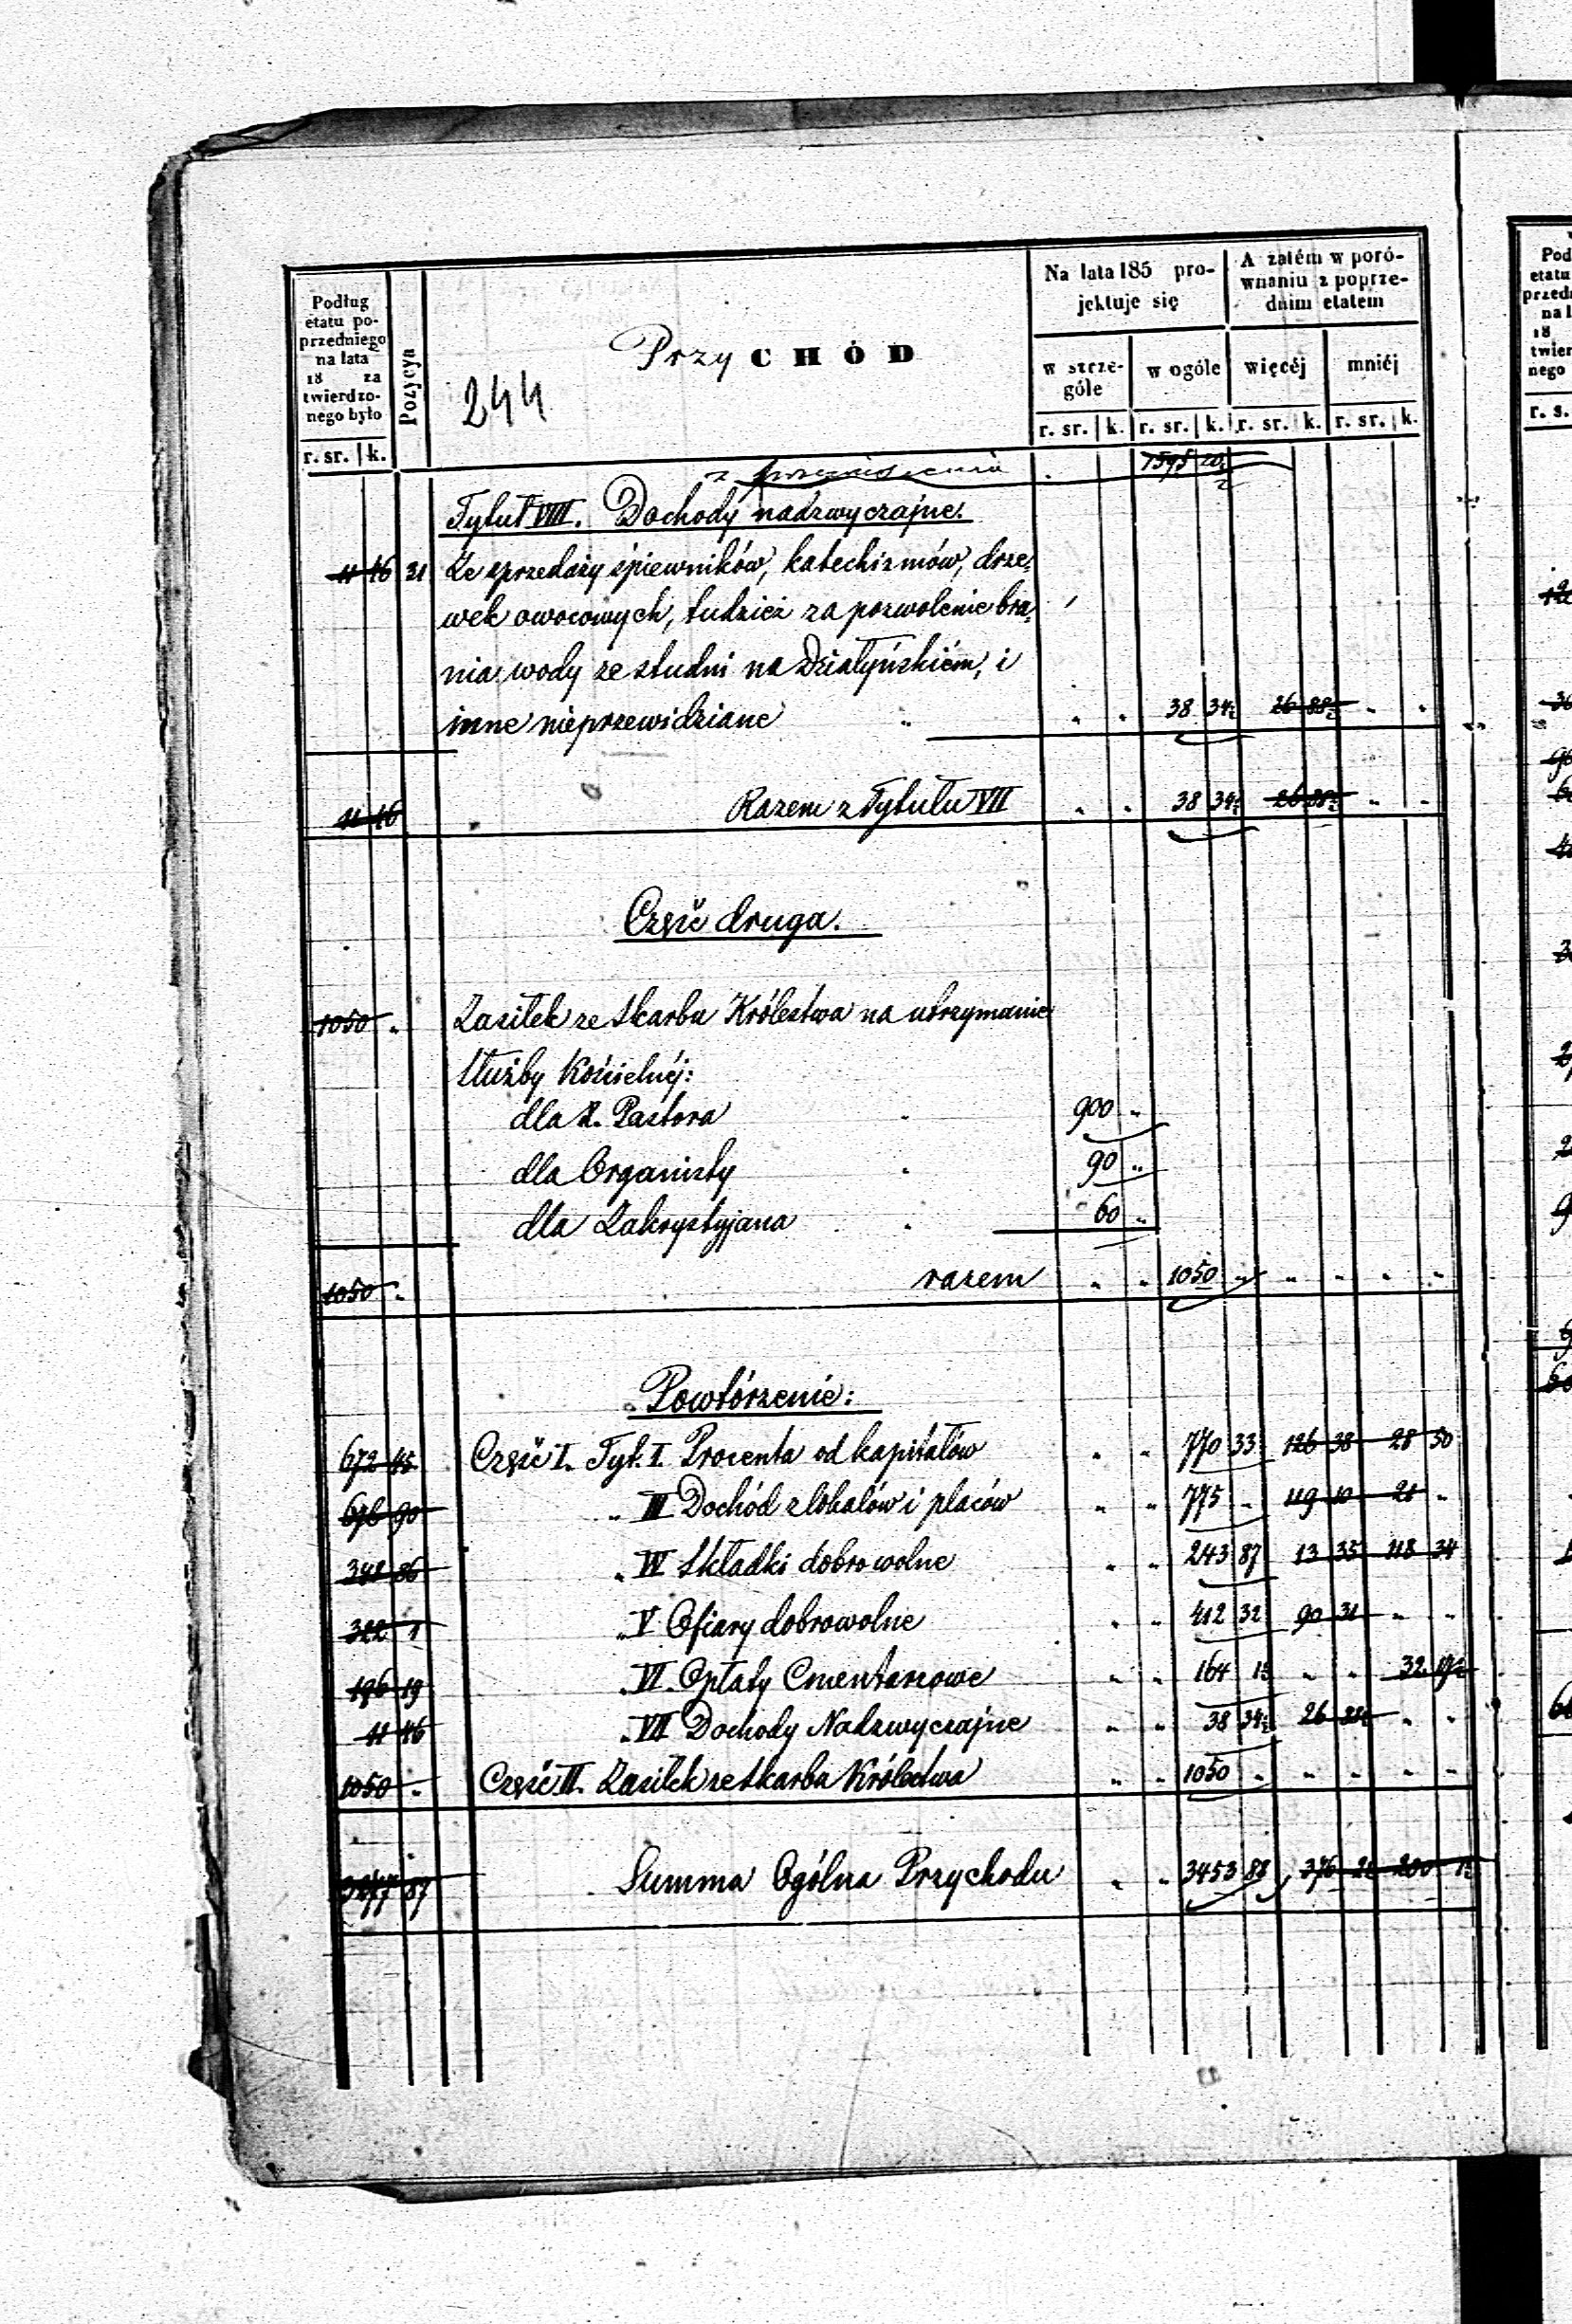 Podług etatu poprzedniego na lata 18 zatwierdzonego było
Pozycya
PrzyCHÓD
244
Na lata 185 projektuje się
A zatém w porównaniu z poprzednim etatem
w szczególe
w ogóle
więcéj
mniéj
r. sr. k. r. sr. k. r. sr. k. r. sr. k. r. sr. k.
z przeniesienia
Tytuł VIII. Dochody nadzwyczajne.
11 46 31 Ze sprzedaży śpiewników, katechizmów, drze,
wek owocowych, tudzież za pozwolenie bra,
nia wody ze studni na Działyńskiém, i
inne nieprzewidziane 38 34½ 26 88½
11 46 Razem z Tytułu VII 38 34½ 26 88½
Część druga.
1050 Zasiłek ze Skarbu Królestwa na utrzymanie
Służby Kościelnéj:
dla X. Pastora 900
dla Organisty 90
dla Zakrystyjana 60
1050 razem 1050
Powtórzenie:
672 45 Część I. Tyt. I Procenta od kapitałów 770 33 126 38 28 50
676 90 „ III Dochód z lokalów i placów 775 119 10 21
348 86 „ IV Składki dobrowolne 243 87 13 35 118 34
322 1 „ V Ofiary dobrowolne 412 32 90 31
196 19 „ VI Opłaty Cmentarzowe 164 1½ 32 17½
11 46 „ VII Dochody Nadzwyczajne 38 34½ 26 88½
1050 Część II. Zasiłek ze Skarbu Królestwa 1050
3277 87 Summa Ogólna Przychodu 3453 88 376 2½ 200 1½